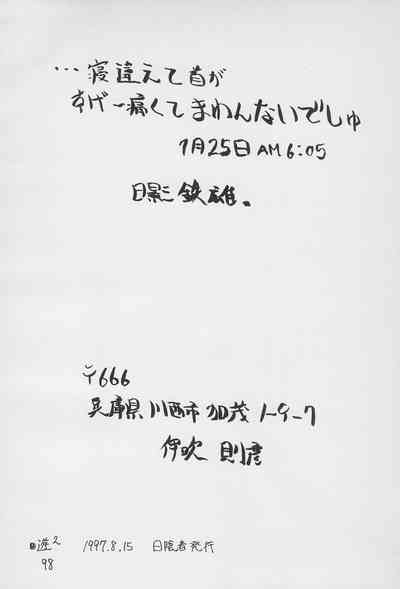 …寝違えて首が
すげー痛くてまわんないでしゅ
1月25日 AM 6:05
日影 鉄雄。
〒666
兵庫県川西市加茂 1-9-7
伊吹 則彦
遊2 1997.8.15 日陰者発行
98